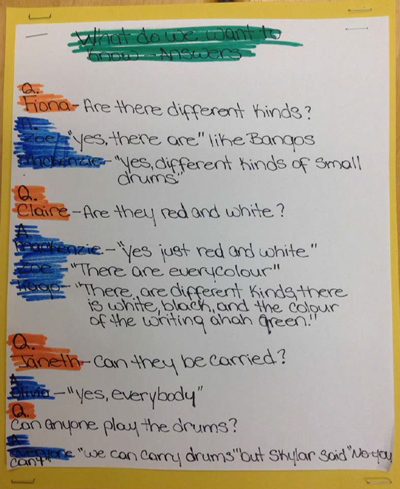 What do we want to
know - Answers
Q.
Fiona - Are there different kinds?
A.
Zoe - "yes, there are" like Bangos
Mackenzie - "yes, different kinds of small
drums"
Q.
Claire - Are they red and white?
A
Mackenzie - "yes just red and white"
Zoe - "There are everycolour"
Hugo - "There, are different kinds, there
is white, black, and the colour
of the writing ahah green."
Q.
Janeth - Can they be carried?
A
Olivia - "yes, everybody"
Q.
Can anyone play the drums?
A
Everyone "we can carry drums" but Skylar said "No you
can't"